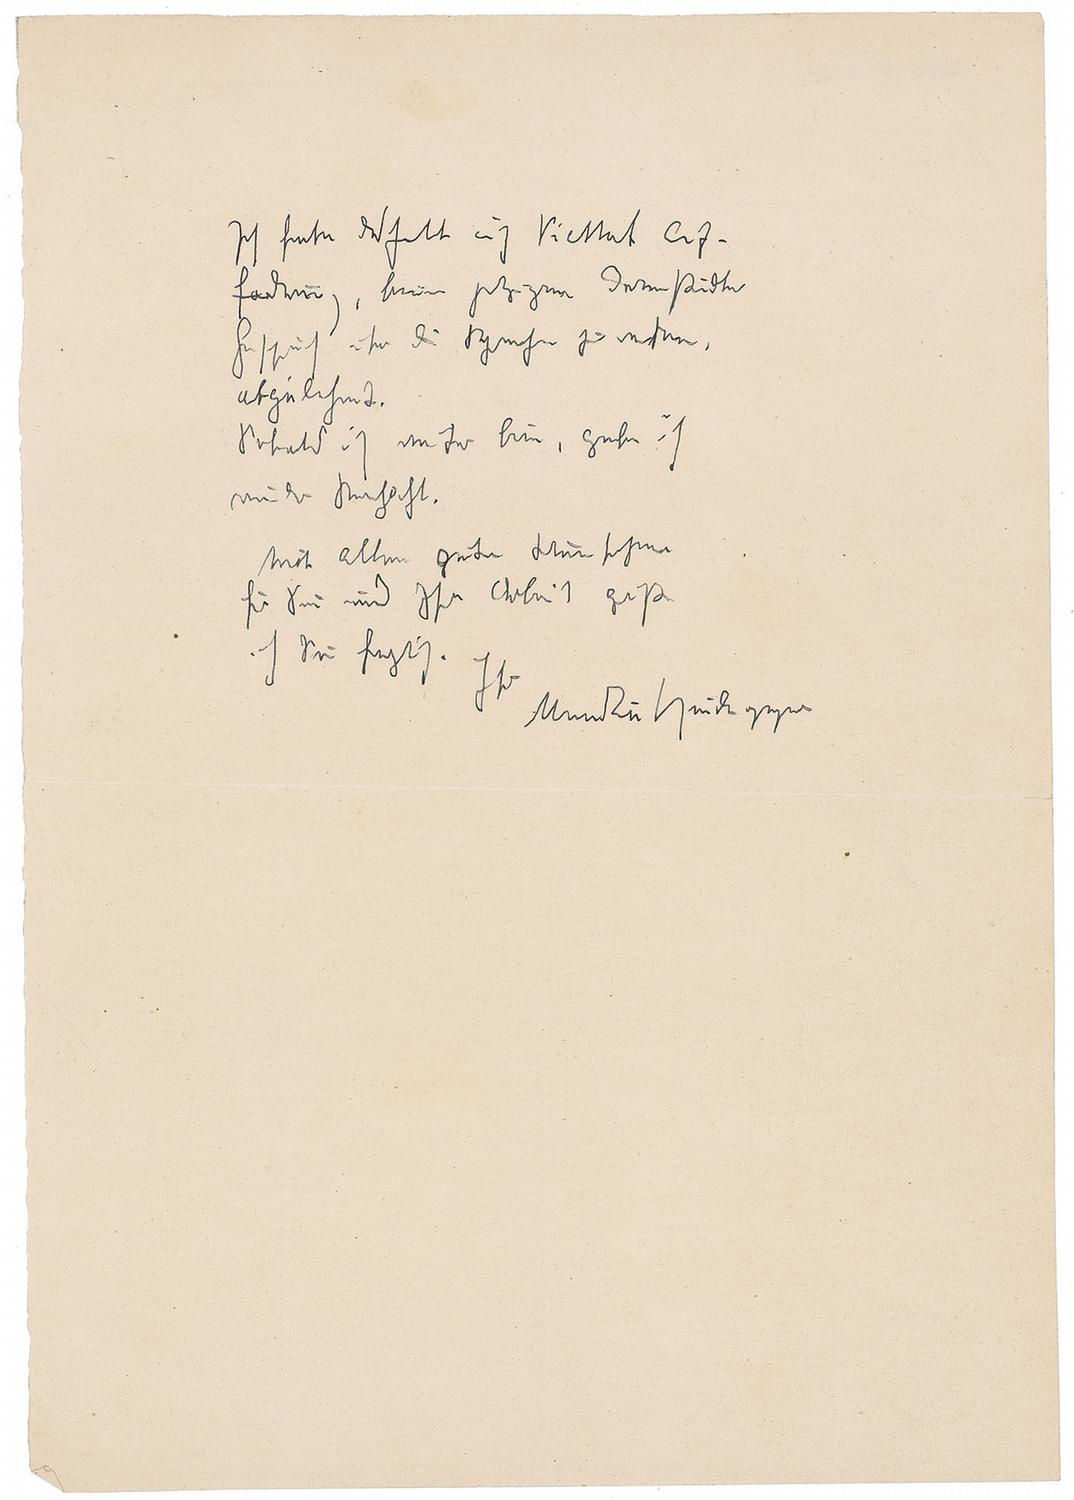 Ich habe deshalb auch Vietta's Auf-
forderung, beim jetzigen Darmstädter
Gespräch über die Sprache zu reden,
abgelehnt.
Sobald ich weiter bin, gebe ich
wieder Nachricht.
Mit allen guten Wünschen
für Sie und Ihre Arbeit grüße
ich Sie herzlich. Ihr
Martin Heidegger